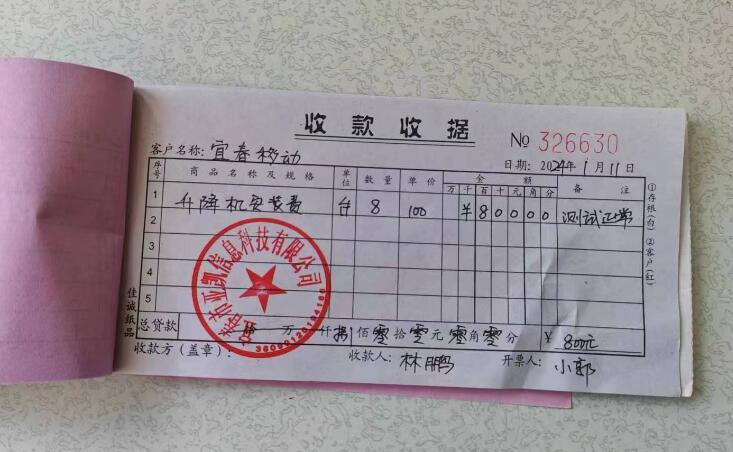 收款收据
No 326630
客户名称：宜春移动
日期：2024年1月11日
序号 商品名称及规格 单位 数量 单价 金额 备注
万 千 百 十 元 角 分
1 升降机安装费 台 8 100 ¥80000 测试正常
2
3
4
5
总贷款 万 仟 捌佰零拾零元零角零分 ¥ 800元
收款方（盖章）： 收款人：林鹏 开票人：小郭
①存根（白）②客户（红）
佳诚纸品
宜春市亚凯信息科技有限公司